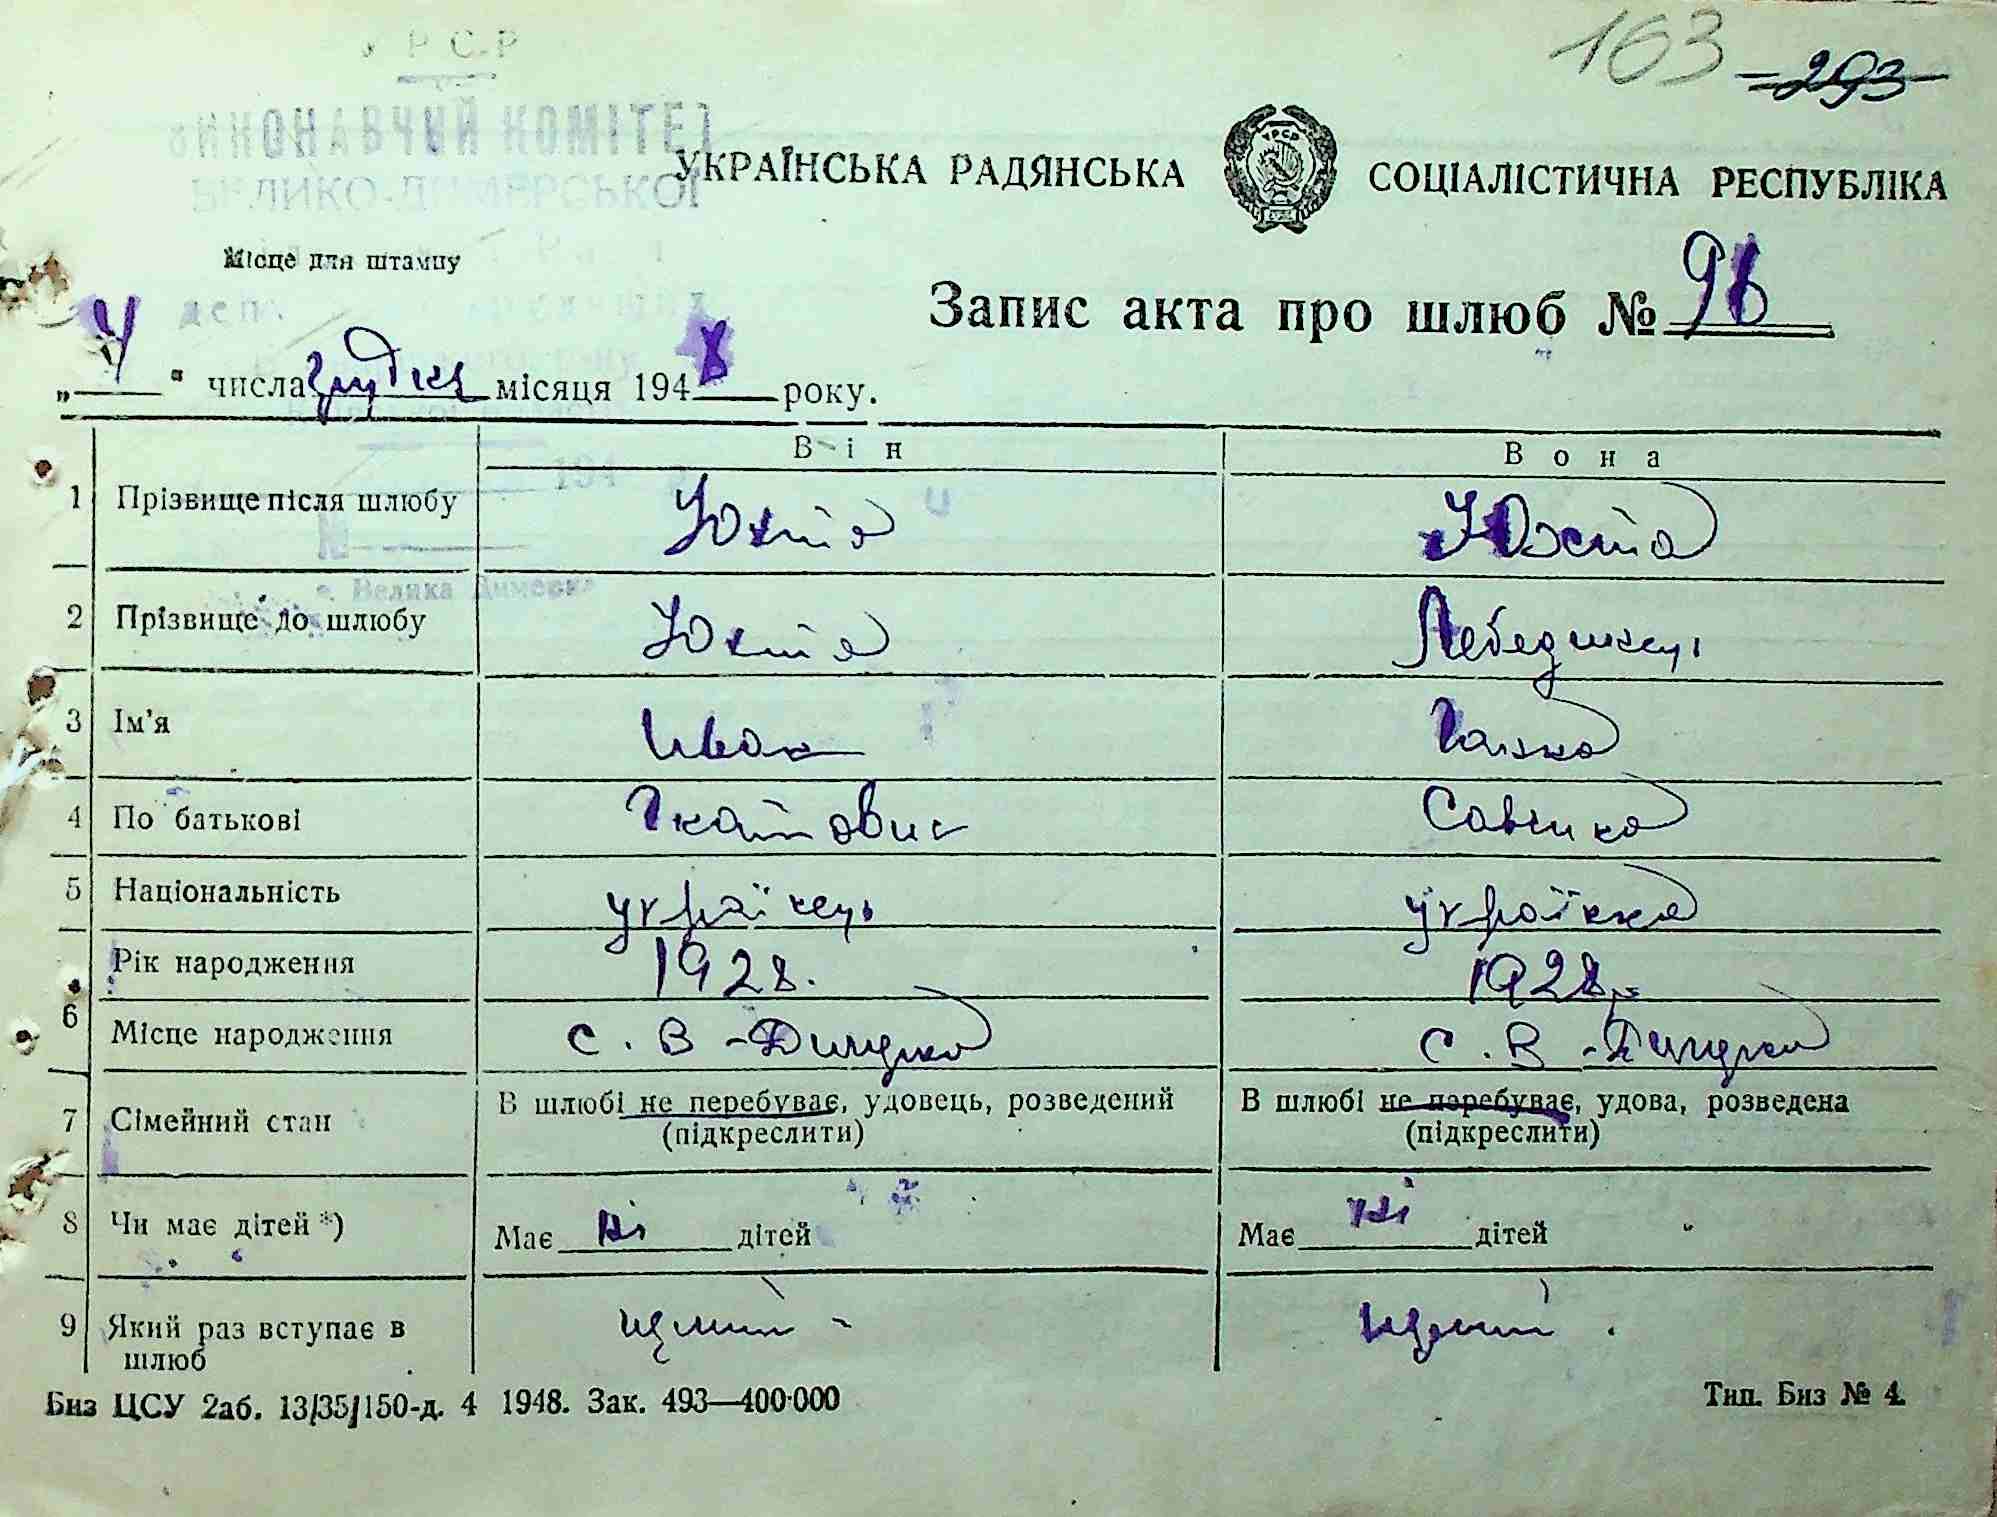 163 293
УРСР
ВИКОНАВЧИЙ КОМІТЕТ
ВЕЛИКО-ДИМЕРСЬКОЇ
УКРАЇНСЬКА РАДЯНСЬКА СОЦІАЛІСТИЧНА РЕСПУБЛІКА
Місце для штампу
Запис акта про шлюб № 96
„ 4 " числа грудня місяця 1948 року.
Він Вона
1 Прізвище після шлюбу Юхта Юхта
194
№
с. Велика Димерка
2 Прізвище до шлюбу Юхта
3 Ім'я Иван Ганна
4 По батькові Гнатович Савична
5 Національність українець українка
6 Рік народження 1928. 1928
Місце народження с. В-Димерка с. В-Димерка
7 Сімейний стан В шлюбі не перебуває, удовець, розведений В шлюбі не перебуває, удова, розведена
(підкреслити) (підкреслити)
8 Чи має дітей *) Має ні дітей Має ні дітей
9 Який раз вступає в
шлюб
Биз ЦСУ 2аб. 13/35/150-д. 4 1948. Зак. 493—400·000 Тип. Биз № 4.